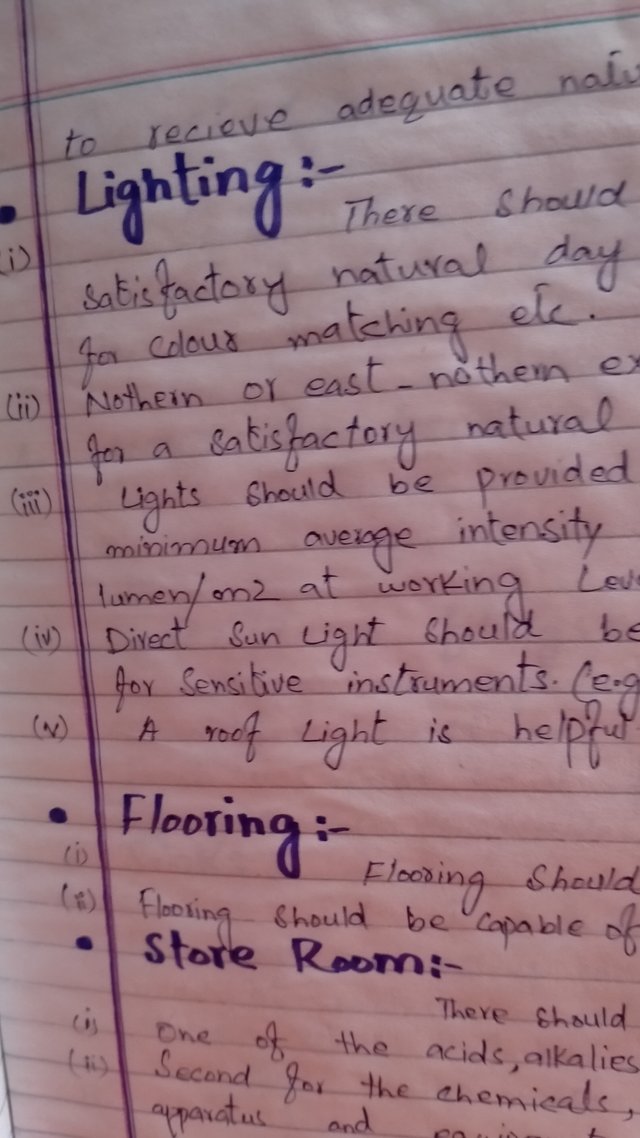 to recieve adequate natu
• Lighting:-
(i) There should
satisfactory natural day
for colour matching etc.
(ii) Nothern or east-nothern ex
for a satisfactory natural
(iii) Lights should be provided
minimum average intensity
lumen/on2 at working Leve
(iv) Direct Sun Light should be
for Sensitive instruments. (e.g
(v) A roof Light is helpful
• Flooring:-
(i) Flooring Should
(ii) Flooring should be capable of
• Store Room:-
There should
(i) One of the acids, alkalies
(ii) Second for the chemicals,
apparatus and